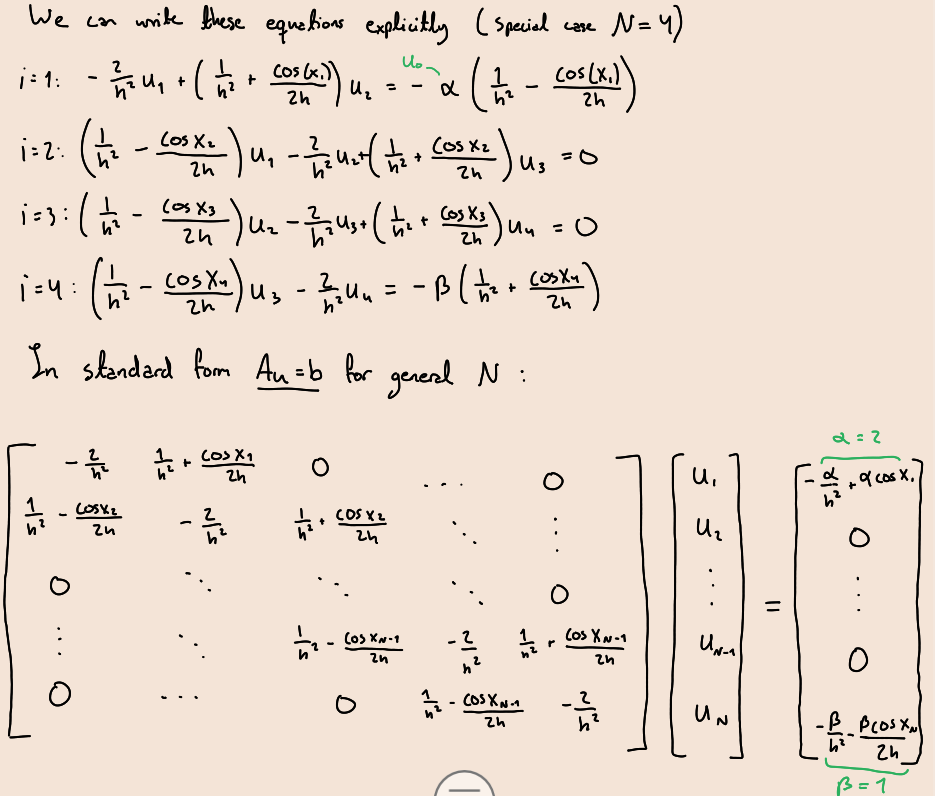 We can write these equations explicitly (special case N=4)
u₀
i=1: -2/h² u₁ + (1/h² + cos(x₁)/2h) u₂ = -α (1/h² - cos(x₁)/2h)
i=2: (1/h² - cos x₂/2h) u₁ - 2/h² u₂ + (1/h² + cos x₂/2h) u₃ = 0
i=3: (1/h² - cos x₃/2h) u₂ - 2/h² u₃ + (1/h² + cos x₃/2h) u₄ = 0
i=4: (1/h² - cos x₄/2h) u₃ - 2/h² u₄ = -β (1/h² + cos x₄/2h)
In standard form Au=b for general N:
α = 2
-2/h² 1/h² + cos x₁/2h 0 ... 0 u₁ -α/h² + α cos x₁
1/h² - cos x₂/2h -2/h² 1/h² + cos x₂/2h ⋱ ⋮ u₂ 0
0 ⋱ ⋱ ⋱ 0 ⋮ = ⋮
⋮ ⋱ 1/h² - cos x_N-1/2h -2/h² 1/h² + cos x_N-1/2h u_N-1 0
0 ... 0 1/h² - cos x_N-1/2h -2/h² u_N -β/h² - β cos x_N/2h
β = 1